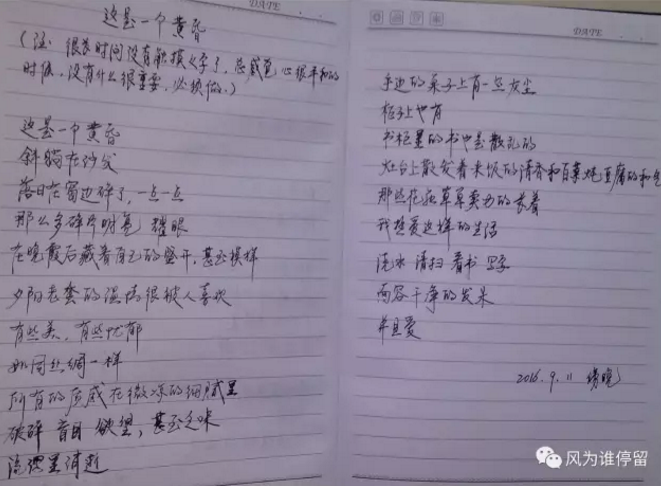 DATE
这是一个黄昏
(注：很长时间没有触摸文字了，总感觉心很平和的
时候，没有什么很重要，必须做。)
这是一个黄昏
斜躺在沙发
落日在窗边碎了，一点一点
那么多碎片明亮 耀眼
在晚霞后藏着自己的盛开，甚至模样
夕阳老套的温情很被人喜欢
有些美，有些忧郁
如同丝绸一样
所有的质感在微凉的细腻里
破碎 盲目 欲望，甚至乏味
流理里消逝
DATE
手边的桌子上有一点灰尘
柜子上也有
书柜里的书也是散乱的
灶台上散发着米饭的清香和白菜炖豆腐的和气
那些花花草草卖力的长着
我热爱这样的生活
浇水 清扫 看书 写字
面容干净的发呆
并且爱
2016.9.11
风为谁停留